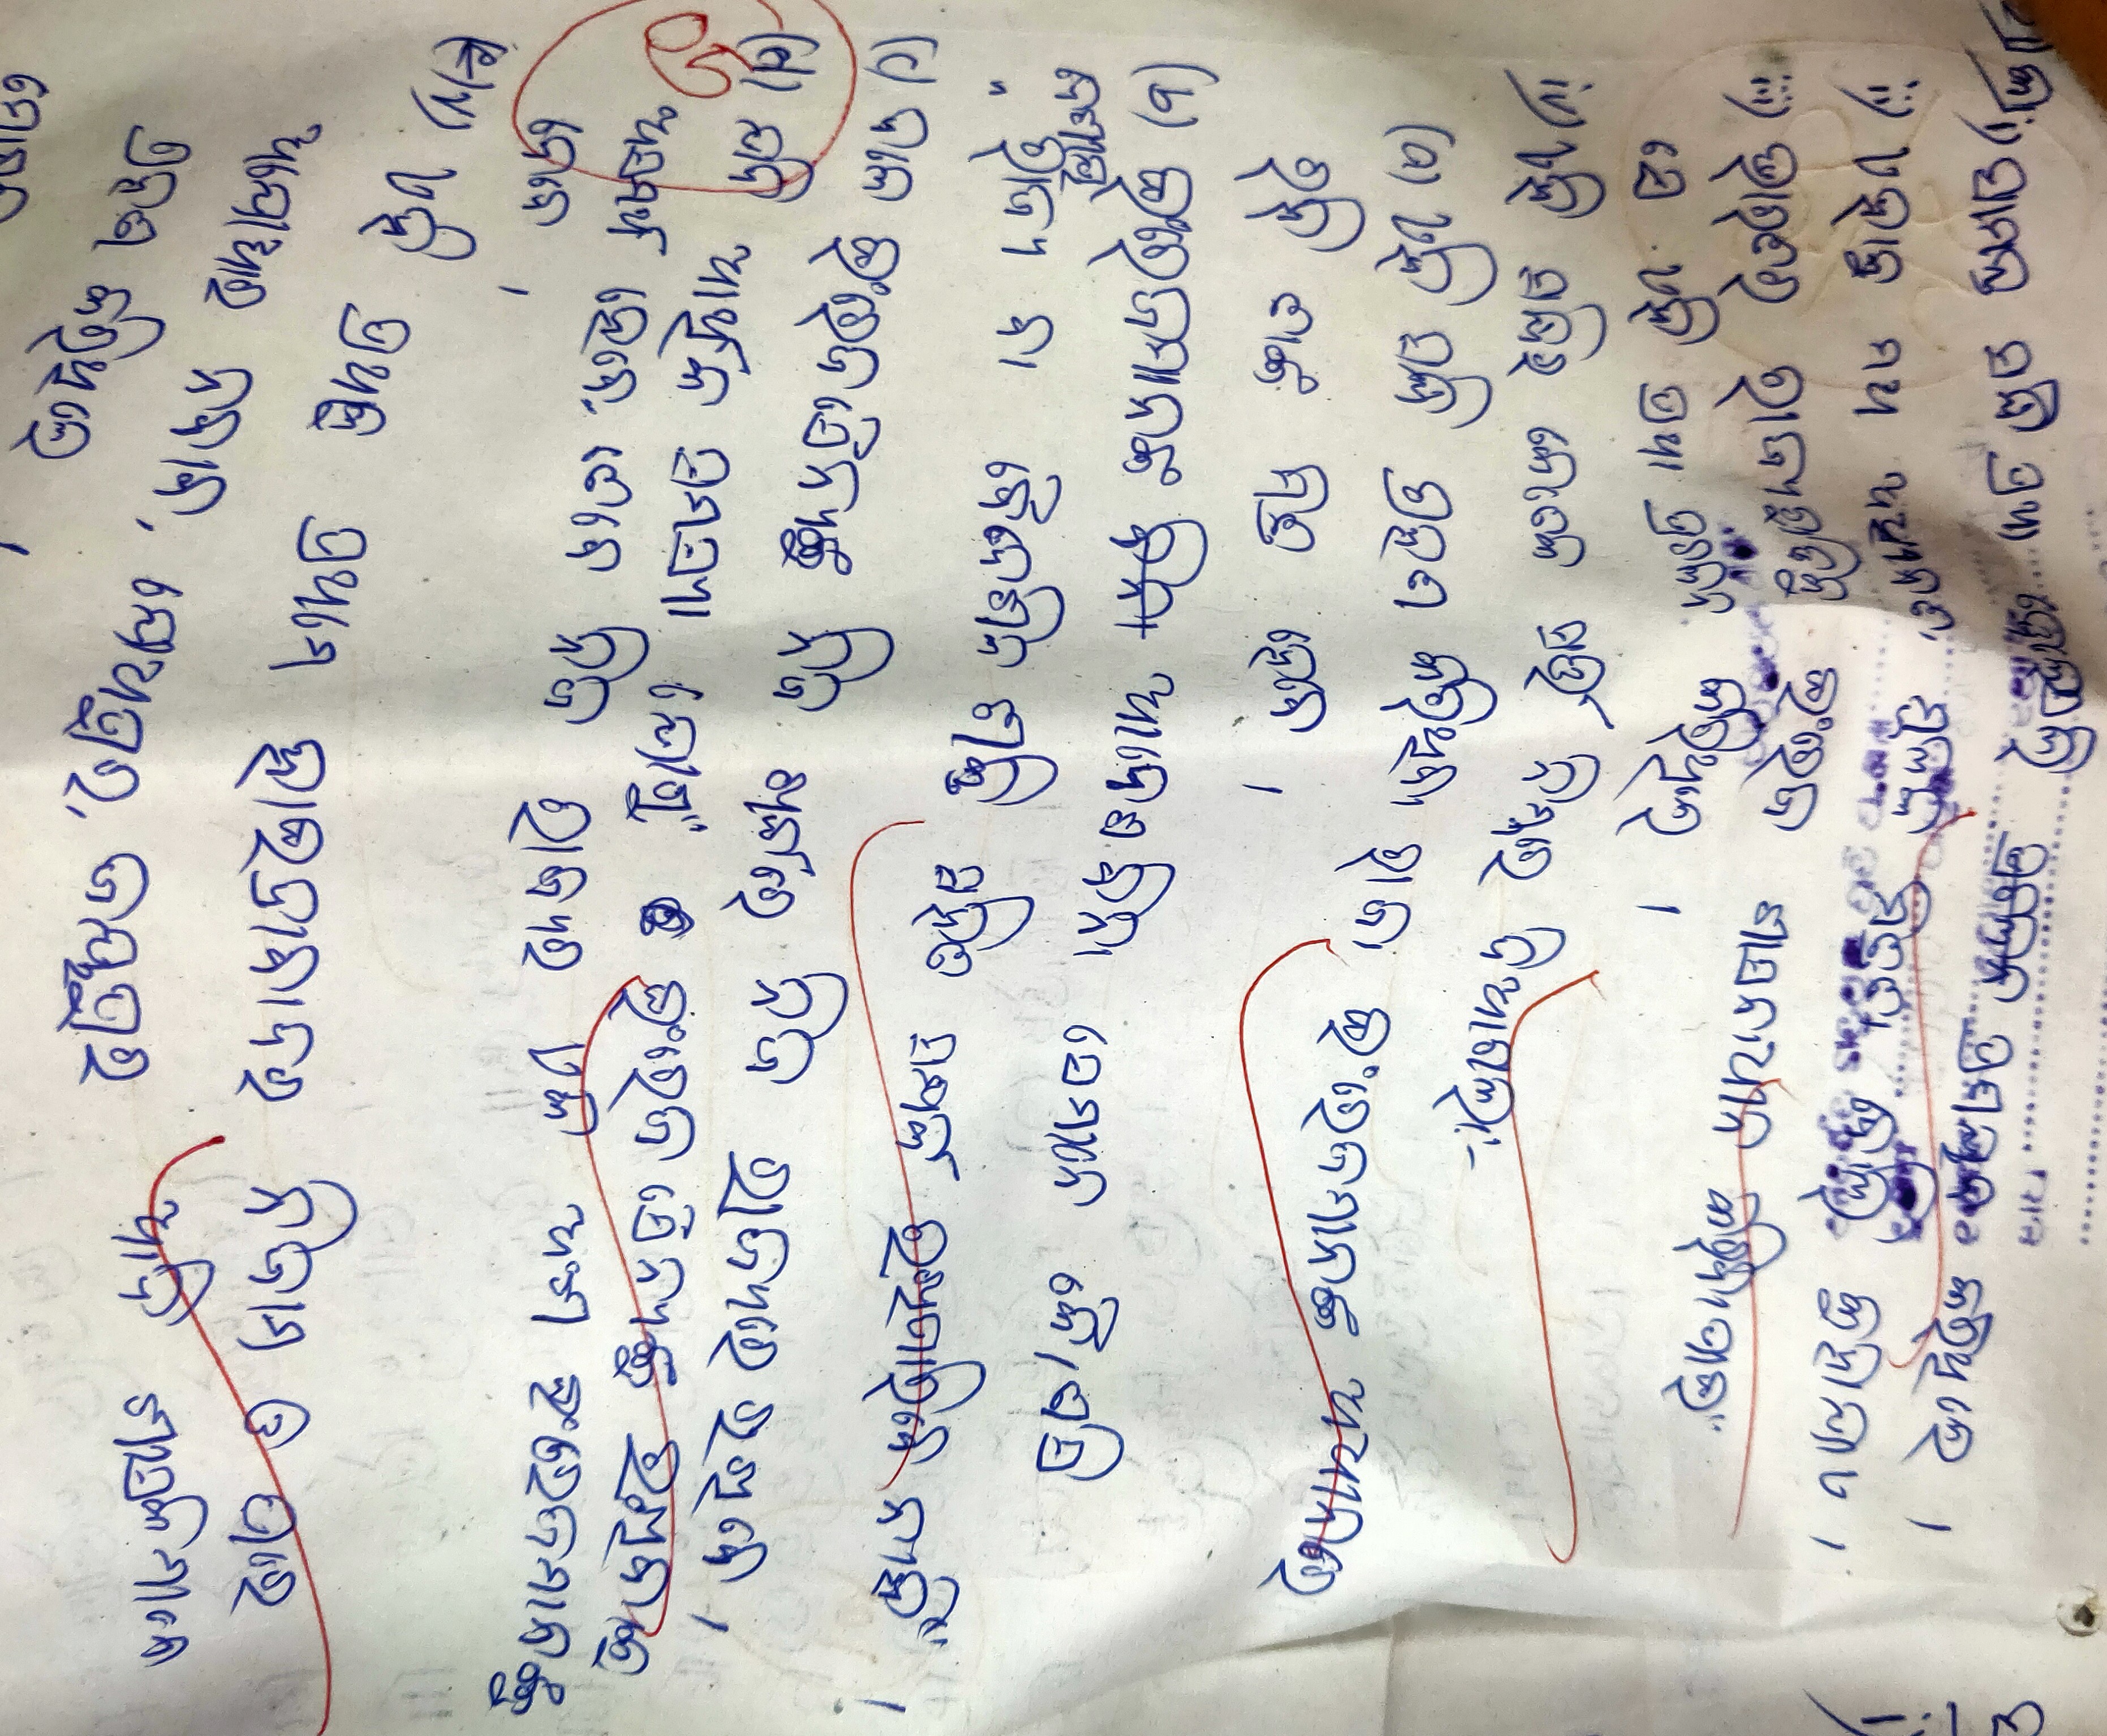 i) ସାମନ୍ତ ସନ୍ଧି ପ୍ରଥା ୱେଲେସଲି ପ୍ରଚଳନ ପ୍ରଣୟନ କରିଥିଲେ ।
ii) ଏହାକୁ ମଧ୍ୟ ଅଧୀନତା ମୂଳକ ମିତ୍ରତା ବୋଲି କୁହାଯାଏ ।
iii) ଭାରତର ରାଜ୍ୟଗୁଡିକୁ ଇଂରେଜ ଶାସନାଧୀନ କରିବାପାଇଁ
ସେ ଏହି ପ୍ରଥା ପ୍ରଚଳନ କରିଥିଲେ ।
iv) ଏହି ସନ୍ଧିର କେତେକ ସର୍ତ୍ତ ନିମ୍ନରେ ଦିଆଗଲା:-
(a) ଏହି ସନ୍ଧି ଗ୍ରହଣ କରିଥିବା ରାଜା ଇଂରେଜମାନଙ୍କ ଅଧୀନରେ
ରହି ତାଙ୍କ ମିତ୍ର ହେବେ ।
(b) ଇଂରେଜମାନଙ୍କ ବିନା ଆଦେଶ ବିନା ସେମାନେ କୌଣସି
ଦେଶୀୟ
ରାଜ୍ୟ ବା ବୈଦେଶିକ ଶକ୍ତି ସହିତ ସମ୍ପର୍କ ରଖିପାରିବେ ନାହିଁ ।
(c) ଦଳେ ଇଂରେଜ ସୈନ୍ୟଙ୍କୁ ନିଜ ଖର୍ଚ୍ଚରେ ନିଜ ରାଜ୍ୟରେ ରଖିବେ ।
(d) ଯଦି ଆର୍ଥିକ ସମସ୍ୟା ଯୋଗୁଁ ଇଂରେଜ ସୈନ୍ୟଙ୍କୁ ରଖିବାରେ
ଅସମର୍ଥ ହେବେ, ତେବେ ନିଜ ରାଜ୍ୟର ଏକ ଅଂଶ ଇଂରେଜମାନଙ୍କୁ
ଦେବେ ।
v) ଏହି ପ୍ରଥାକୁ ପ୍ରଥମେ ହାଇଦ୍ରାବାଦର ନିଜାମ ଓ ପରେ
ଅଯୋଧ୍ୟାର ନବାବ, ଯୋଧପୁର, ଜୟପୁର ଆଦି ଶାସକମାନେ
ଗ୍ରହଣ କରିଥିଲେ ।